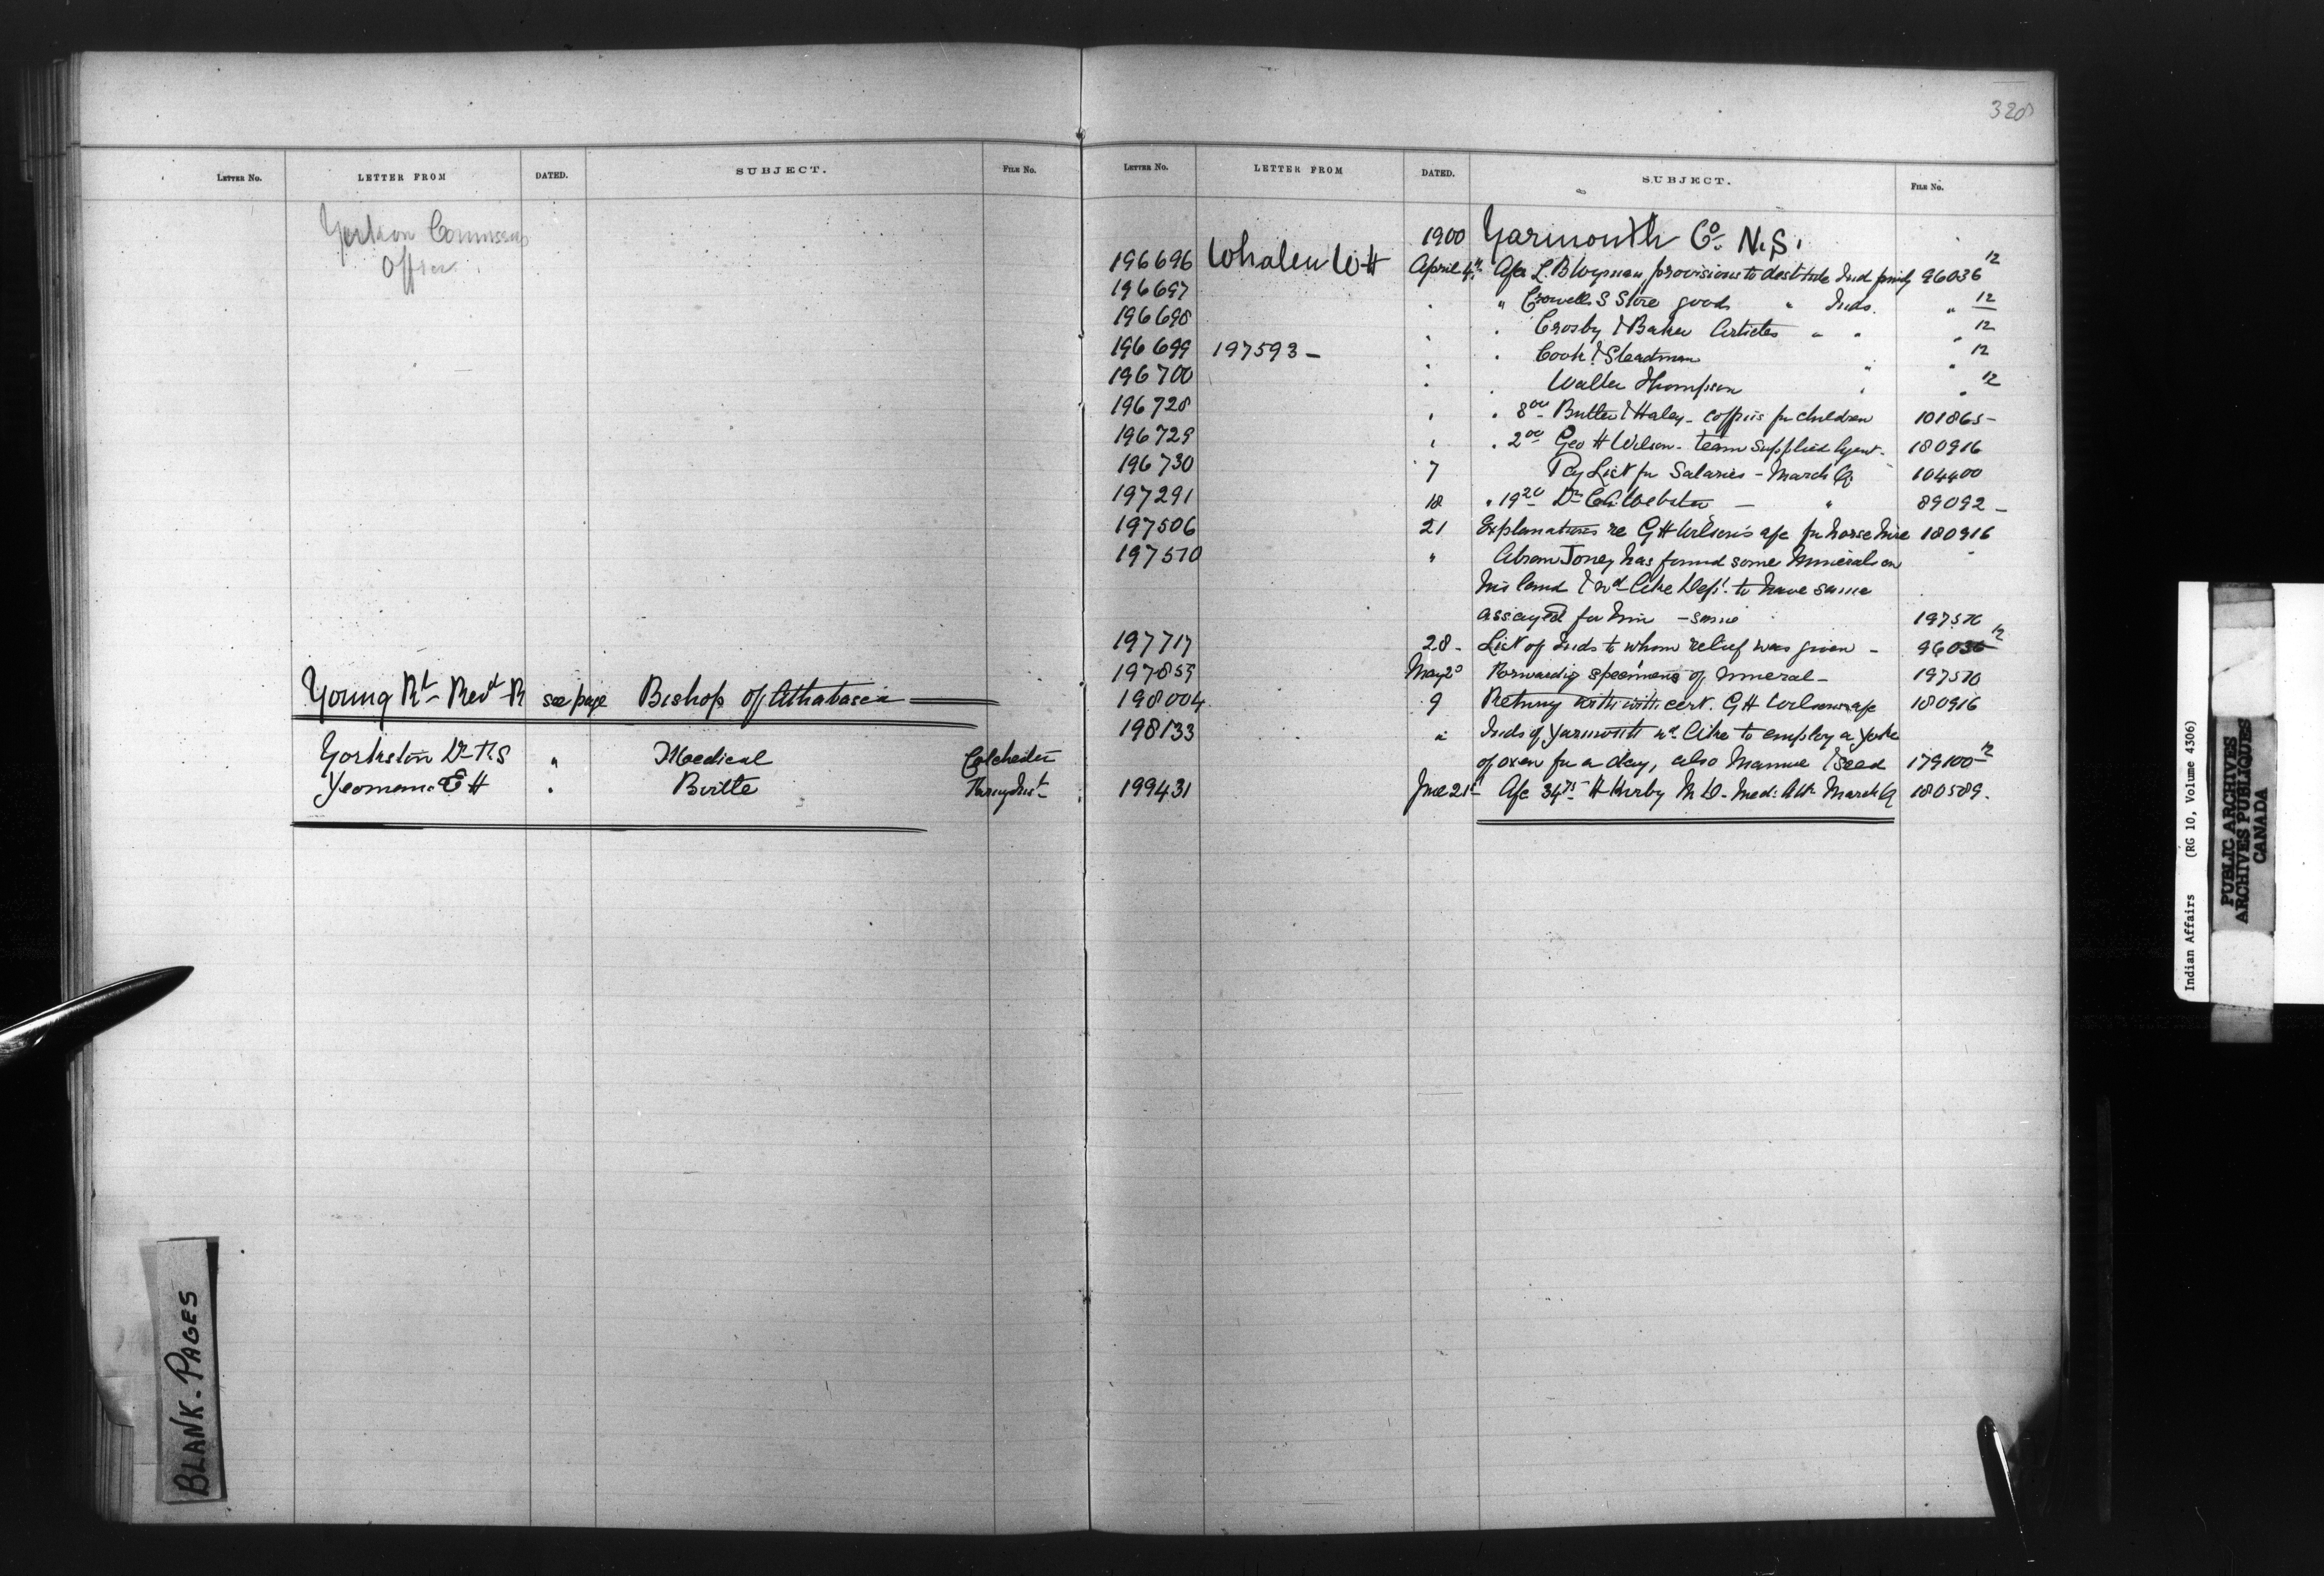 320
LETTER No. LETTER FROM DATED. SUBJECT. FILE No.
Office
Young Rt Revd R see page Bishop of Athabasca
Yorkston Dr T.S " Medical Colchester
Yeomans E H " Birtle
BLANK-PAGES
LETTER No. LETTER FROM DATED. SUBJECT. FILE No.
1900 Yarmouth Co. N.S.
196696 Whalen W H April 4th A/c L. B Wyman provisions to destitute Ind family 96036 12
196697 " Crowells S Store goods " Inds. " 12
196698 " Crosby & Baker Articles " " " 12
196699 197593 - " Cook & Steadman " " 12
196700 " Walter Thompson " " 12
196728 " 8 00 Butler & Haley - coffins for children 101865 -
196729 " 2 00 Geo H Wilson - team supplied Agent - 180916
196730 7 Pay List for Salaries - March Q. 104400
197291 18 " 19 20 Dr C A Webster - " 89092 -
197506 21 Explanations re G H Wilson's a/c for horse hire 180916
197510 " Abram Toney has found some Minerals on
his land & wd like Dept. to have same
assayed for him - same 197510
197717 28 - List of Inds to whom relief was given - 96036 12
197855 May 2 Forwardig specimens of mineral - 197510
198004 9 Returng with cert. G H Wilsons a/c 180916
198133 " Inds of Yarmouth wd like to employ a yoke
of oxen for a day, also Manure & seed 179100 12
199431 June 21st A/c 34 75 H Kirby M D. Med: Att: March Q 180589.
Indian Affairs (RG 10, Volume 4306)
PUBLIC ARCHIVES
ARCHIVES PUBLIQUES
CANADA